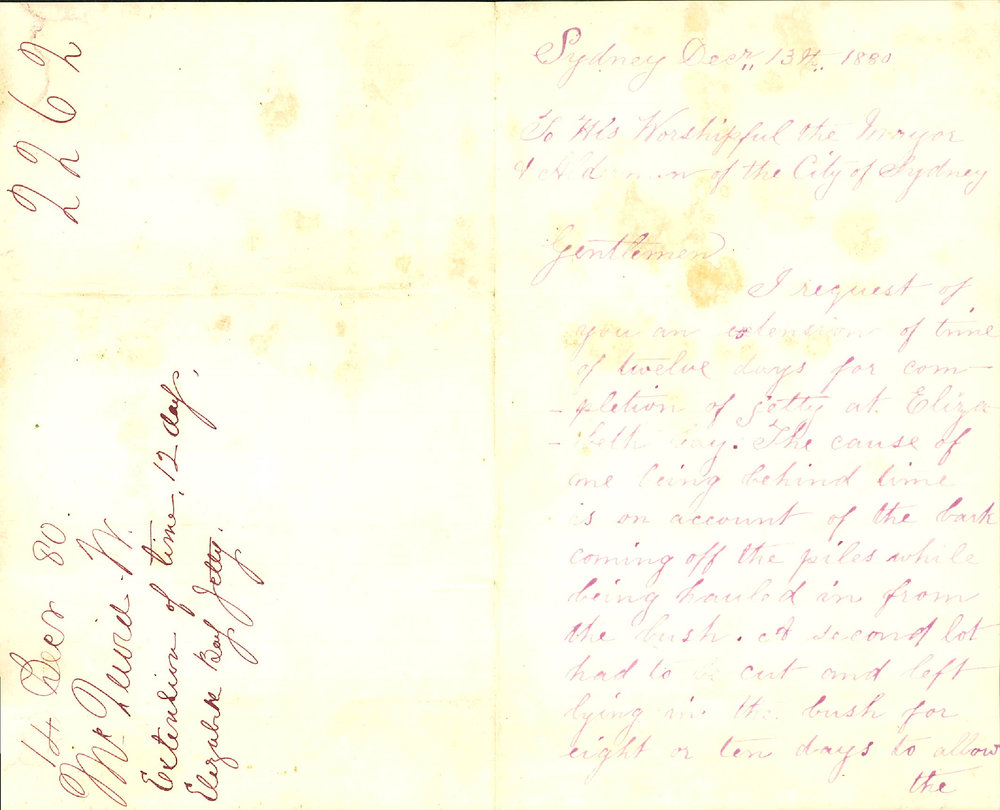 2262
14 Decr 80.
Mc Quoid W.
Extension of time, 12 days,
Elizabeth Bay Jetty.
Sydney Decr,, 13th,, 1880
To His Worshipful the Mayor
& Aldermen of the City of Sydney
Gentlemen
I request of
you an extension of time
of twelve days for com-
-pletion of jetty at Eliza
-beth bay. The cause of
me being behind time
is on account of the bark
coming off the piles while
being hauled in from
the bush. A second lot
had to be cut and left
lying in the bush for
eight or ten days to allow
the